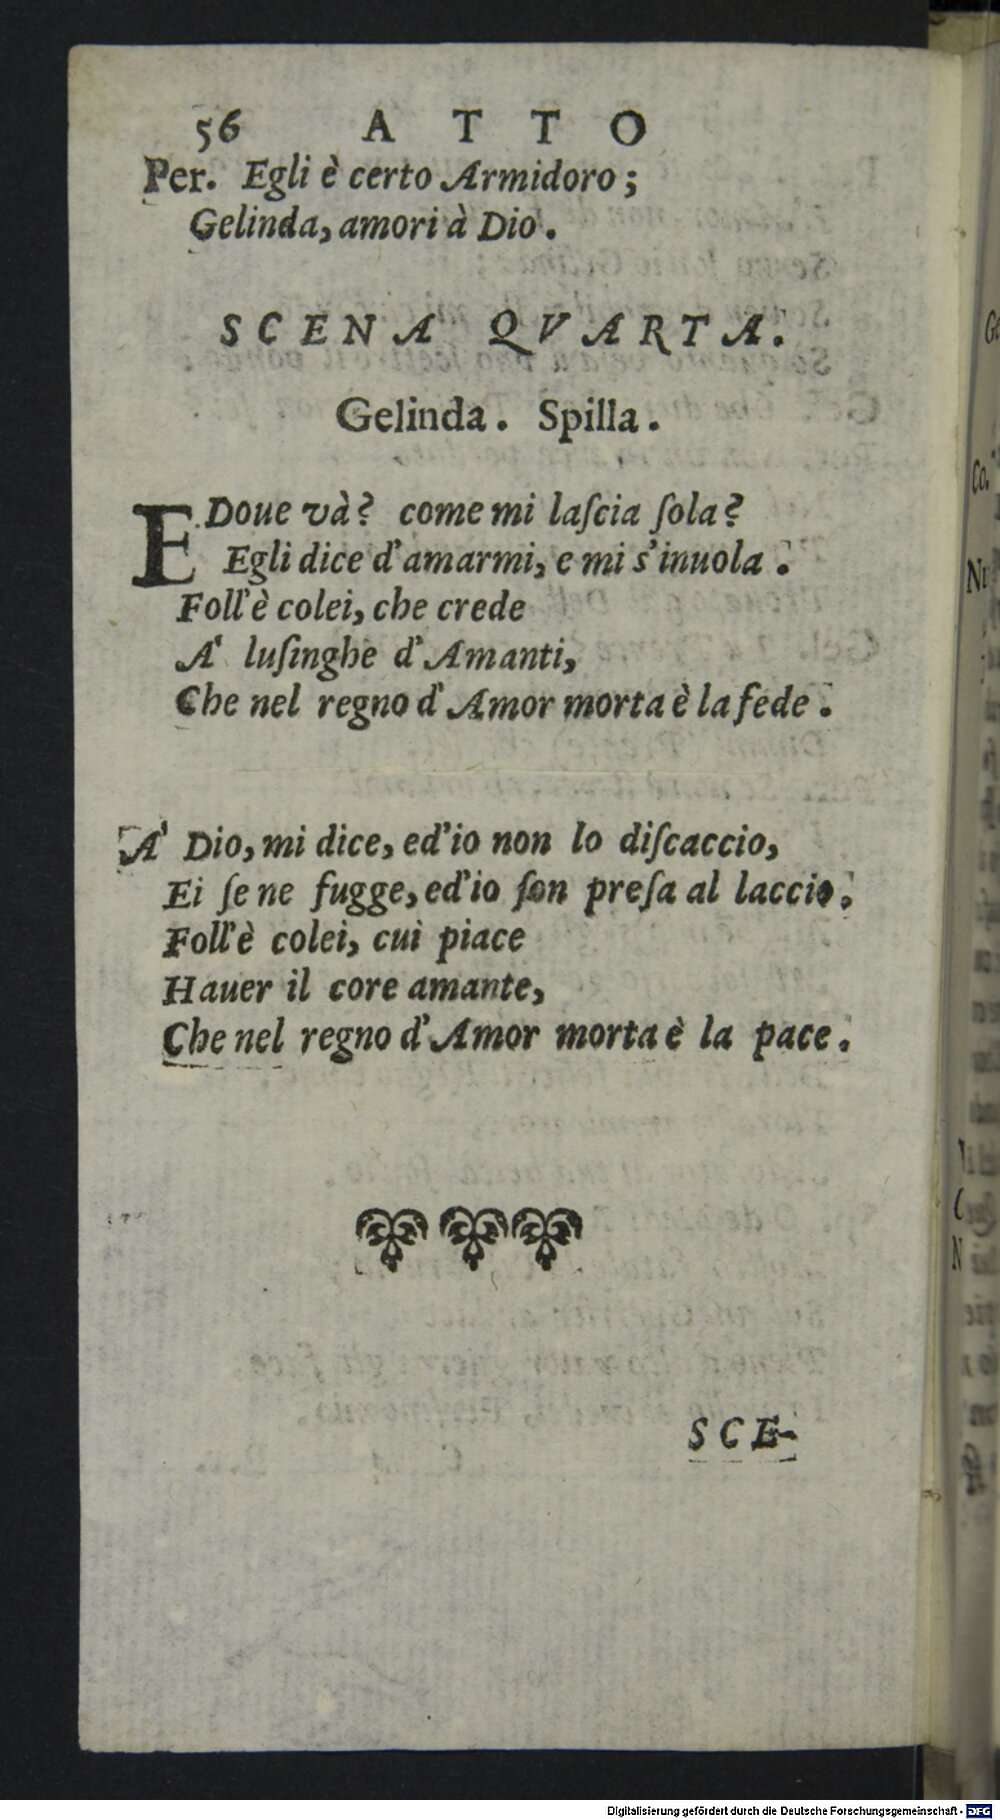 56 ATTO
Per. Egli è certo Armidoro;
Gelinda, amori à Dio.
SCENA QVARTA.
Gelinda. Spilla.
E Doue và? come mi laſcia ſola?
Egli dice d'amarmi, e mi s'inuola.
Foll'è colei, che crede
A' luſinghe d'Amanti,
Che nel regno d'Amor morta è la fede.
A' Dio, mi dice, ed'io non lo diſcaccio,
Ei ſe ne fugge, ed'io ſon preſa al laccio.
Foll'è colei, cui piace
Hauer il core amante,
Che nel regno d'Amor morta è la pace.
SCE-
Digitalisierung gefördert durch die Deutsche Forschungsgemeinschaft - DFG